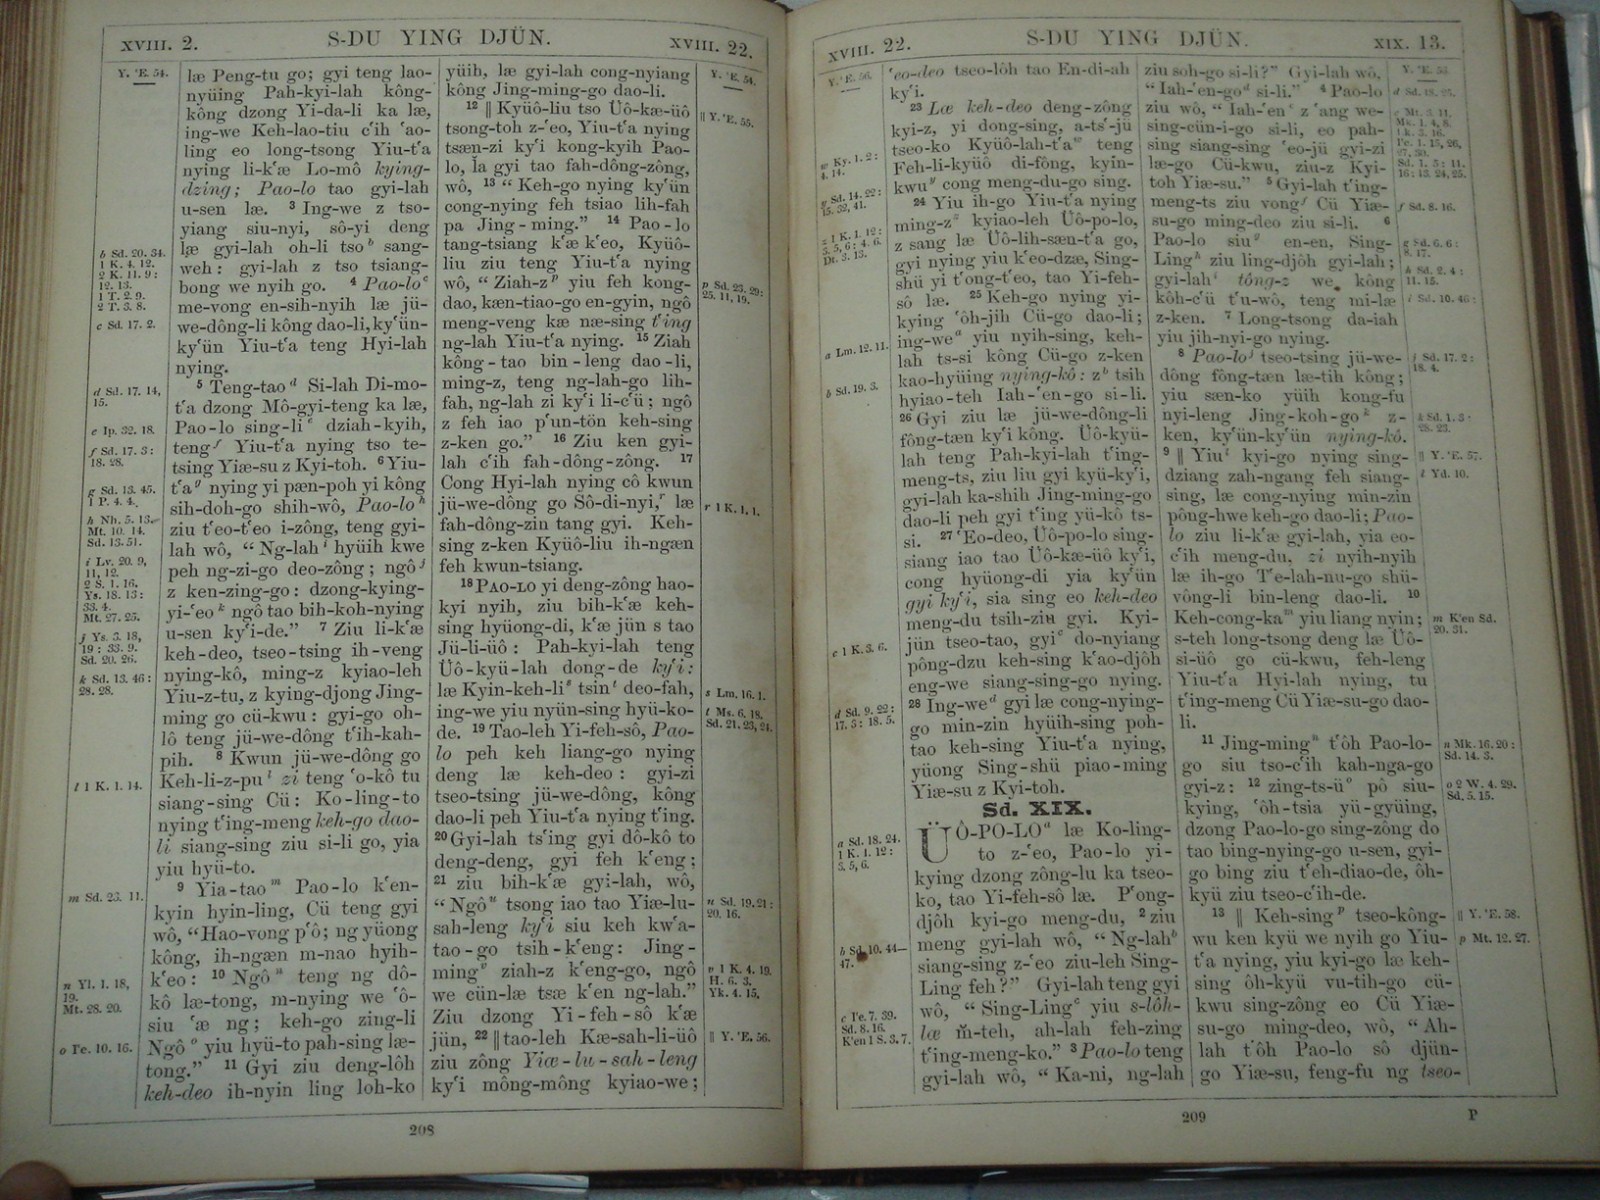 XVIII. 2. S-DU YING DJÜN. XVIII. 22.
Y. 'E. 54.
b Sd. 20. 34.
1 K. 4. 12.
2 K. 11. 9:
12. 13.
1 T. 2. 9.
2 T. 3. 8.
c Sd. 17. 2.
d Sd. 17. 14,
15.
e Ip. 32. 18.
f Sd. 17. 3:
18. 28.
g Sd. 13. 45.
1 P. 4. 4.
h Nh. 5. 13.
Mt. 10. 14.
Sd. 13. 51.
i Lv. 20. 9,
11, 12.
2 S. 1. 16.
Ys. 18. 13:
33. 4.
Mt. 27. 25.
j Ys. 3. 18,
19: 33. 9.
Sd. 20. 26.
k Sd. 13. 46:
28. 28.
l 1 K. 1. 14.
m Sd. 23. 11.
n Yl. 1. 18,
19.
Mt. 28. 20.
o Te. 10. 16.
læ Peng-tu go; gyi teng lao-
nyüing Pah-kyi-lah kông-
kông dzong Yi-da-li ka læ,
ing-we Keh-lao-tiu c'ih 'ao-
ling eo long-tsong Yiu-t'a
nying li-k'æ Lo-mô kying-
dzing; Pao-lo tao gyi-lah
u-sen læ. 3 Ing-we z tso-
yiang siu-nyi, sô-yi deng
læ gyi-lah oh-li tso b sang-
weh: gyi-lah z tso tsiang-
bong we nyih go. 4 Pao-lo c
me-vong en-sih-nyih læ jü-
we-dông-li kông dao-li, ky'ün-
ky'ün Yiu-t'a teng Hyi-lah
nying.
5 Teng-tao d Si-lah Di-mo-
t'a dzong Mô-gyi-teng ka læ,
Pao-lo sing-li e dziah-kyih,
teng f Yiu-t'a nying tso te-
tsing Yiæ-su z Kyi-toh. 6 Yiu-
t'a g nying yi pæn-poh yi kông
sih-doh-go shih-wô, Pao-lo h
ziu t'eo-t'eo i-zông, teng gyi-
lah wô, “ Ng-lah i hyüih kwe
peh ng-zi-go deo-zông; ngô j
z ken-zing-go: dzong-kying-
yi-'eo k ngô tao bih-koh-nying
u-sen ky'i-de.” 7 Ziu li-k'æ
keh-deo, tseo-tsing ih-veng
nying-kô, ming-z kyiao-leh
Yiu-z-tu, z kying-djong Jing-
ming go cü-kwu: gyi-go oh-
lô teng jü-we-dông t'ih-kah-
pih. 8 Kwun jü-we-dông go
Keh-li-z-pu l zi teng 'o-kô tu
siang-sing Cü: Ko-ling-to
nying t'ing-meng keh-go dao-
li siang-sing ziu si-li go, yia
yiu hyü-to.
9 Yia-tao m Pao-lo k'en-
kyin hyin-ling, Cü teng gyi
wô, “Hao-vong p'ô; ng yüong
kông, ih-ngæn m-nao hyih-
k'eo: 10 Ngô n teng ng dô-
kô læ-tong, m-nying we 'ô-
siu 'æ ng; keh-go zing-li
Ngô o yiu hyü-to pah-sing læ-
tong.” 11 Gyi ziu deng-lôh
keh-deo ih-nyin ling loh-ko
yüih, læ gyi-lah cong-nyiang
kông Jing-ming-go dao-li.
12 || Kyüô-liu tso Üô-kæ-üô
tsong-toh z-'eo, Yiu-t'a nying
tsæn-zi ky'i kong-kyih Pao-
lo, la gyi tao fah-dông-zông,
wô, 13 “ Keh-go nying ky'ün
cong-nying feh tsiao lih-fah
pa Jing-ming.” 14 Pao-lo
tang-tsiang k'æ k'eo, Kyüô-
liu ziu teng Yiu-t'a nying
wô, “ Ziah-z p yiu feh kong-
dao, kæn-tiao-go en-gyin, ngô
meng-veng kæ næ-sing t'ing
ng-lah Yiu-t'a nying. 15 Ziah
kông-tao bin-leng dao-li,
ming-z, teng ng-lah-go lih-
fah, ng-lah zi ky'i li-c'ü; ngô
z feh iao p'un-tön keh-sing
z-ken go.” 16 Ziu ken gyi-
lah c'ih fah-dông-zông. 17
Cong Hyi-lah nying cô kwun
jü-we-dông go Sô-di-nyi, r læ
fah-dông-zin tang gyi. Keh-
sing z-ken Kyüô-liu ih-ngæn
feh kwun-tsiang.
18 PAO-LO yi deng-zông hao-
kyi nyih, ziu bih-k'æ keh-
sing hyüong-di, k'æ jün s tao
Jü-li-üô: Pah-kyi-lah teng
Üô-kyü-lah dong-de ky'i:
læ Kyin-keh-li s tsin t deo-fah,
ing-we yiu nyün-sing hyü-ko-
de. 19 Tao-leh Yi-feh-sô, Pao-
lo peh keh liang-go nying
deng læ keh-deo: gyi-zi
tseo-tsing jü-we-dông, kông
dao-li peh Yiu-t'a nying t'ing.
20 Gyi-lah ts'ing gyi dô-kô to
deng-deng, gyi feh k'eng;
21 ziu bih-k'æ gyi-lah, wô,
“ Ngô u tsong iao tao Yiæ-lu-
sah-leng ky'i siu keh kw'a-
tao-go tsih-k'eng: Jing-
ming v ziah-z k'eng-go, ngô
we cün-læ tsæ k'en ng-lah.”
Ziu dzong Yi-feh-sô k'æ
jün, 22 || tao-leh Kæ-sah-li-üô
ziu zông Yiæ-lu-sah-leng
ky'i mông-mông kyiao-we;
Y. 'E. 54.
|| Y. 'E. 55.
p Sd. 23. 29:
25. 11, 19.
r 1 K. 1. 1.
s Lm. 16. 1.
t Ms. 6. 18.
Sd. 21. 23, 24.
n Sd. 19. 21:
20. 16.
v 1 K. 4. 19.
H. 6. 3.
Yk. 4. 15.
|| Y. 'E. 56.
208
XVIII. 22. S-DU YING DJÜN. XIX. 13.
Y. 'E. 56.
w Ky. 1. 2:
4. 14.
y Sd. 14. 22:
15. 32, 41.
z 1 K. 1. 12:
3. 5, 6: 4. 6.
Di. 3. 13.
a Lm. 12. 11.
b Sd. 19. 3.
c 1 K. 3. 6.
d Sd. 9. 22:
17. 3: 18. 5.
a Sd. 18. 24.
1 K. 1. 12:
3. 5, 6.
b Sd. 10. 44—
47.
c Te. 7. 39.
Sd. 8. 16.
K'en 1 S. 3. 7.
'eo-deo tseo-lôh tao En-di-ah
ky'i.
23 Læ keh-deo deng-zông
kyi-z, yi dong-sing, a-ts'-jü
tseo-ko Kyüô-lah-t'a w teng
Feh-li-kyüô di-fông, kyin-
kwu y cong meng-du-go sing.
24 Yiu ih-go Yiu-t'a nying
ming-z z kyiao-leh Üô-po-lo,
z sang læ Üô-lih-sæn-t'a go,
gyi nying yiu k'eo-dzæ, Sing-
shü yi t'ong-t'eo, tao Yi-feh-
sô læ. 25 Keh-go nying yi-
kying 'ôh-jih Cü-go dao-li;
ing-we a yiu nyih-sing, keh-
lah ts-si kông Cü-go z-ken
kao-hyüing nying-kô: z b tsih
hyiao-teh Iah-'en-go si-li.
26 Gyi ziu læ jü-we-dông-li
fông-tæn ky'i kông. Üô-kyü-
lah teng Pah-kyi-lah t'ing-
meng-ts, ziu liu gyi kyü-ky'i,
gyi-lah ka-shih Jing-ming-go
dao-li peh gyi t'ing yü-kô ts-
si. 27 'Eo-deo, Üô-po-lo sing-
siang iao tao Üô-kæ-üô ky'i,
cong hyüong-di yia ky'ün
gyi ky'i, sia sing eo keh-deo
meng-du tsih-ziu gyi. Kyi-
jün tseo-tao, gyi c do-nyiang
pông-dzu keh-sing k'ao-djôh
eng-we siang-sing-go nying.
28 Ing-we d gyi læ cong-nying-
go min-zin hyüih-sing poh-
tao keh-sing Yiu-t'a nying,
yüong Sing-shü piao-ming
Yiæ-su z Kyi-toh.
Sd. XIX.
ÜÔ-PO-LO a læ Ko-ling-
to z-'eo, Pao-lo yi-
kying dzong zông-lu ka tseo-
ko, tao Yi-feh-sô læ. P'ong-
djôh kyi-go meng-du, 2 ziu
meng gyi-lah wô, “ Ng-lah b
siang-sing z-'eo ziu-leh Sing-
Ling feh?” Gyi-lah teng gyi
wô, “ Sing-Ling c yiu s-lôh-
læ m̄-teh, ah-lah feh-zing
t'ing-meng-ko.” 3 Pao-lo teng
gyi-lah wô, “ Ka-ni, ng-lah
ziu soh-go si-li?” Gyi-lah wô,
“ Iah-'en-go d si-li.” 4 Pao-lo
ziu wô, “ Iah-'en e z 'ang we-
sing-cün-i-go si-li, eo pah-
sing siang-sing 'eo-jü gyi-zi
læ-go Cü-kwu, ziu-z Kyi-
toh Yiæ-su.” 5 Gyi-lah t'ing-
meng-ts ziu vong f Cü Yiæ-
su-go ming-deo ziu si-li. 6
Pao-lo siu g en-en, Sing-
Ling h ziu ling-djôh gyi-lah;
gyi-lah i tông-z we kông
kôh-c'ü t'u-wô, teng mi-læ
z-ken. 7 Long-tsong da-iah
yiu jih-nyi-go nying.
8 Pao-lo j tseo-tsing jü-we-
dông fông-tæn læ-tih kông;
yiu sæn-ko yüih kong-fu
nyi-leng Jing-koh-go k z-
ken, ky'ün-ky'ün nying-kô.
9 || Yiu l kyi-go nying sing-
dziang zah-ngang feh siang-
sing, læ cong-nying min-zin
pông-hwe keh-go dao-li; Pao-
lo ziu li-k'æ gyi-lah, yia eo-
c'ih meng-du, zi nyih-nyih
læ ih-go T'e-lah-nu-go shü-
vông-li bin-leng dao-li. 10
Keh-cong-ka m yiu liang nyin;
s-teh long-tsong deng læ Üô-
si-üô go cü-kwu, feh-leng
Yiu-t'a Hyi-lah nying, tu
t'ing-meng Cü Yiæ-su-go dao-
li.
11 Jing-ming n t'ôh Pao-lo-
go siu tso-c'ih kah-nga-go
gyi-z: 12 zing-ts-ü o pô siu-
kying, 'ôh-tsia yü-gyüing,
dzong Pao-lo-go sing-zông do
tao bing-nying-go u-sen, gyi-
go bing ziu t'eh-diao-de, ôh-
kyü ziu tseo-c'ih-de.
13 || Keh-sing p tseo-kông-
wu ken kyü we nyih go Yiu-
t'a nying, yiu kyi-go læ keh-
sing ôh-kyü vu-tih-go cü-
kwu sing-zông eo Cü Yiæ-
su-go ming-deo, wô, “ Ah-
lah t'ôh Pao-lo sô djün-
go Yiæ-su, feng-fu ng tseo-
d Sd. 18. 25.
f Sd. 8. 16.
g Sd. 6. 6:
8. 17.
h Sd. 2. 4:
11. 15.
i Sd. 10. 46:
j Sd. 17. 2:
18. 4.
k Sd. 1. 3:
28. 23.
|| Y. 'E. 57.
l Yd. 10.
m K'en Sd.
20. 31.
n Mk. 16. 20:
Sd. 14. 3.
o 2 W. 4. 29.
Sd. 5. 15.
|| Y. 'E. 58.
p Mt. 12. 27.
209
P